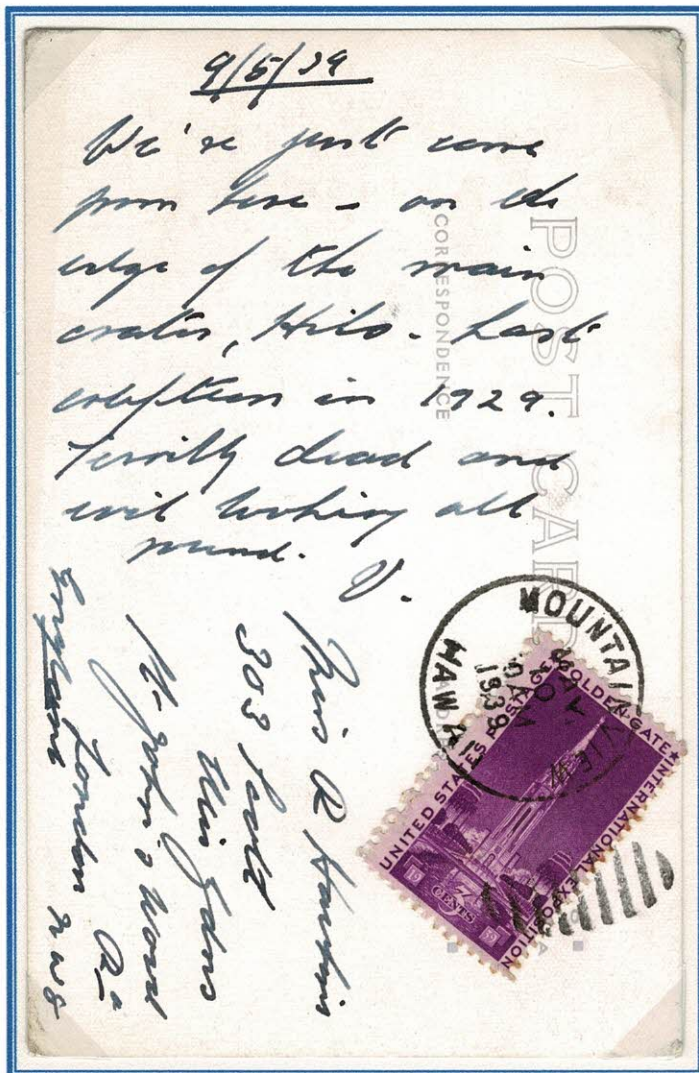 9/5/39
We're just come
from here - on the
edge of the main
crater, Hilo. Last
eruption in 1929.
Terribly dead and
evil looking all
round. V.
POST CARD
CORRESPONDENCE
Miss R
303
St. John's Wood
London NW8
England
MOUNTAIN VIEW
HAWAII
MAY
1939
UNITED STATES POSTAGE
GOLDEN GATE
INTERNATIONAL EXPOSITION
3
CENTS
19
39